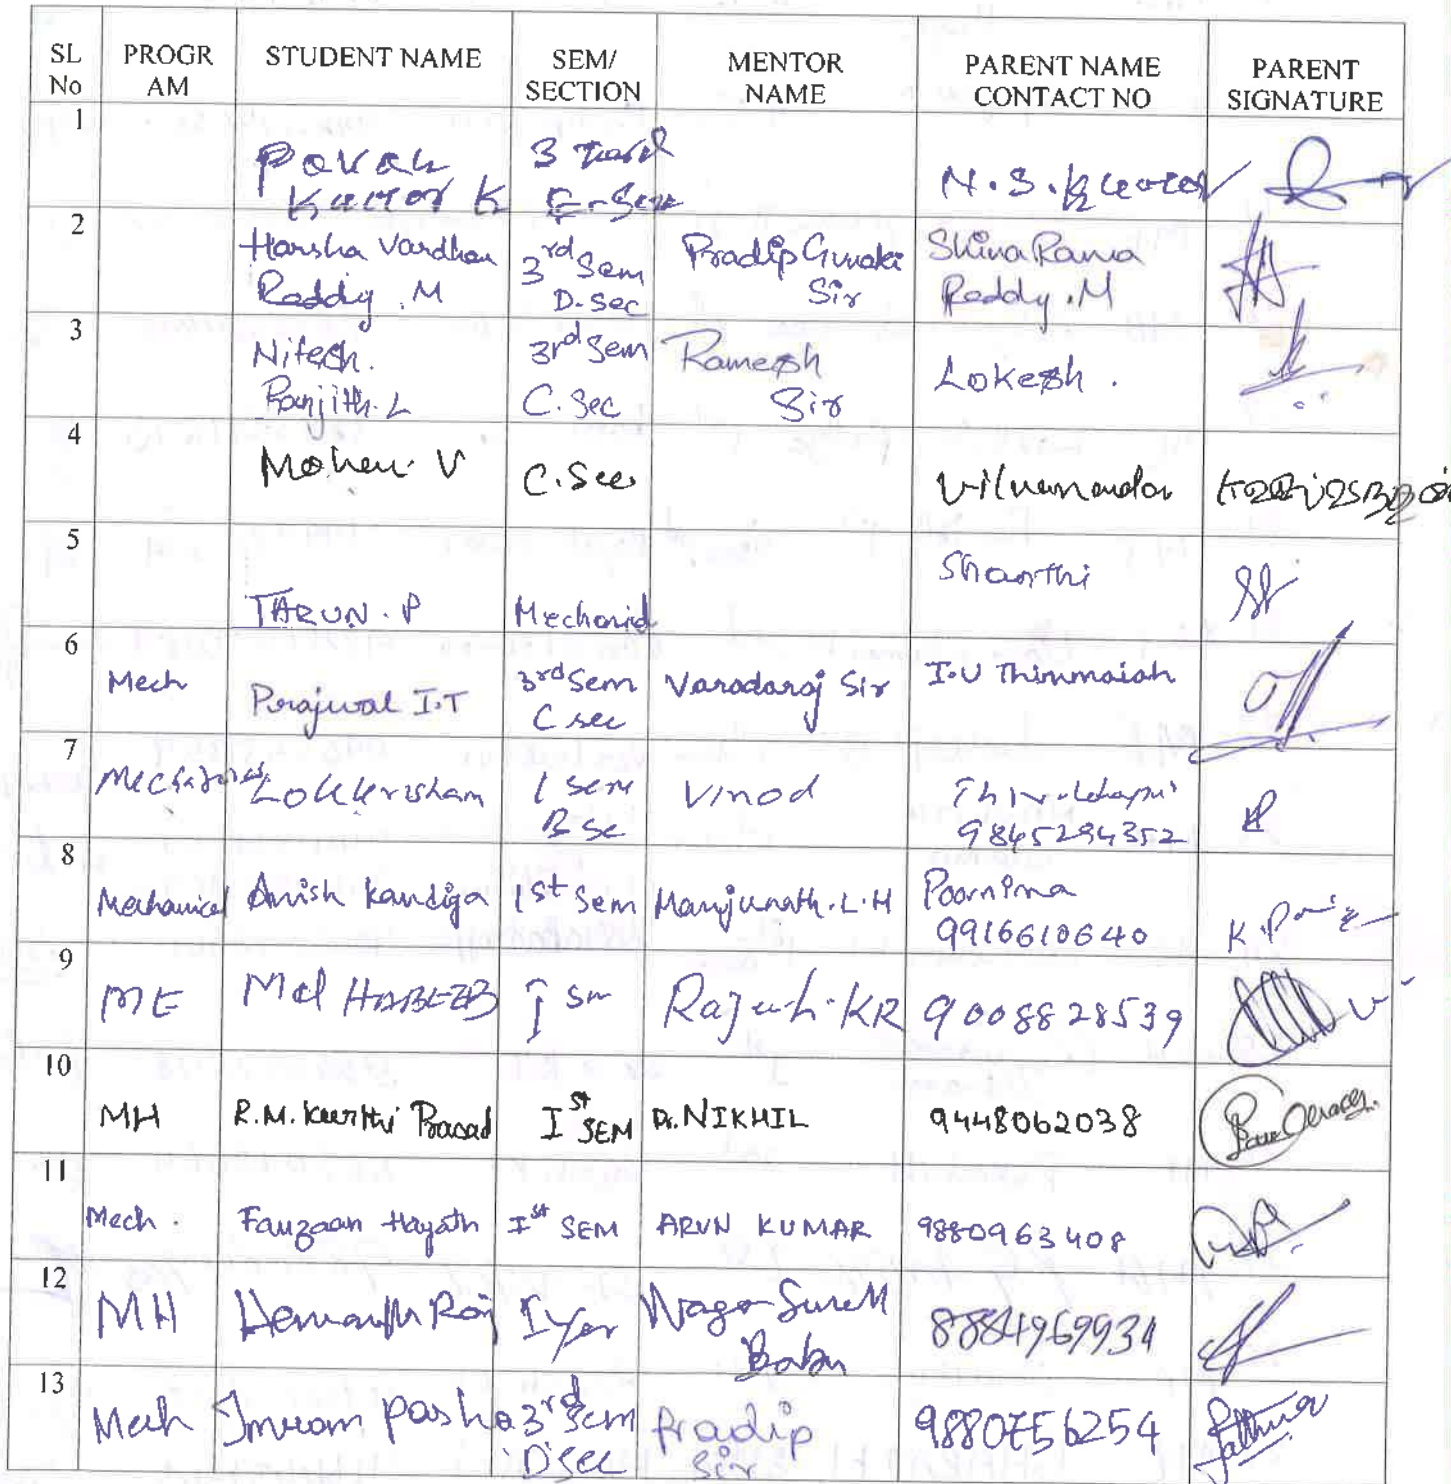 SL No PROGR AM STUDENT NAME SEM/ SECTION MENTOR NAME PARENT NAME CONTACT NO PARENT SIGNATURE
1 Pavan Kumar K 3 Sem N.S.
2 Harsha Vardhan Reddy .M 3rd Sem D. Sec Pradip Gunaki Sir Shiva Rama Reddy .M
3 Nitesh. Ranjith. L 3rd Sem C. Sec Ramesh Sir Lokesh .
4 Mohan V C. Sec
5 TARUN . P Shanthi
6 Mech Prajwal I.T 3rd Sem C sec Varadaraj Sir I.U Thimmaiah
7 1 Sem B Sc Vinod 9845294352
8 Mechanical Anish Kandiga 1st Sem Manjunath. L. H Poornima 9916610640
9 ME Md HABEEB I Sm KR 9008828539
10 MH R.M. Keerthi Prasad Ist SEM Dr. NIKHIL 9448062038
11 Mech . Fauzaan Hayath Ist SEM ARUN KUMAR 9880963408
12 MH Hemanth Raj I Naga Suresh Babu 8884969934
13 Mech Imran pasha 3rd Sem D Sec Pradip Sir 9880756254